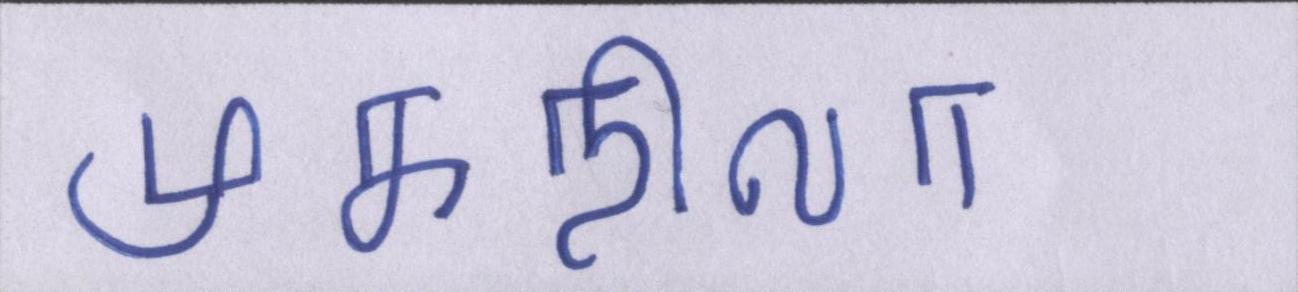 முகநிலா